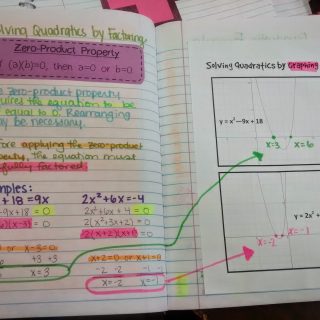 lving Quadratics by Factoring
Zero-Product Property
f (a)(b)=0, then a=0 or b=0
zero-product property
uires the equation to be
equal to 0. Rearranging
y be necessary.
ore applying the zero-product
perty, the equation must
fully factored.
mples:
+18=9x
-9x+18=0
)(x-3)=0
or x-3=0
+3 +3
x=3
2x²+6x=-4
2x²+6x+4=0
2(x²+3x+2)=0
2(x+2)(x+1)=0
x+2=0 or x+1=0
-2 -2 -1 -1
x=-2 x=-1
Solving Quadratics by Graphing
y = x² - 9x + 18
x=3 x=6
y = 2x² +
x=-2 x=-1